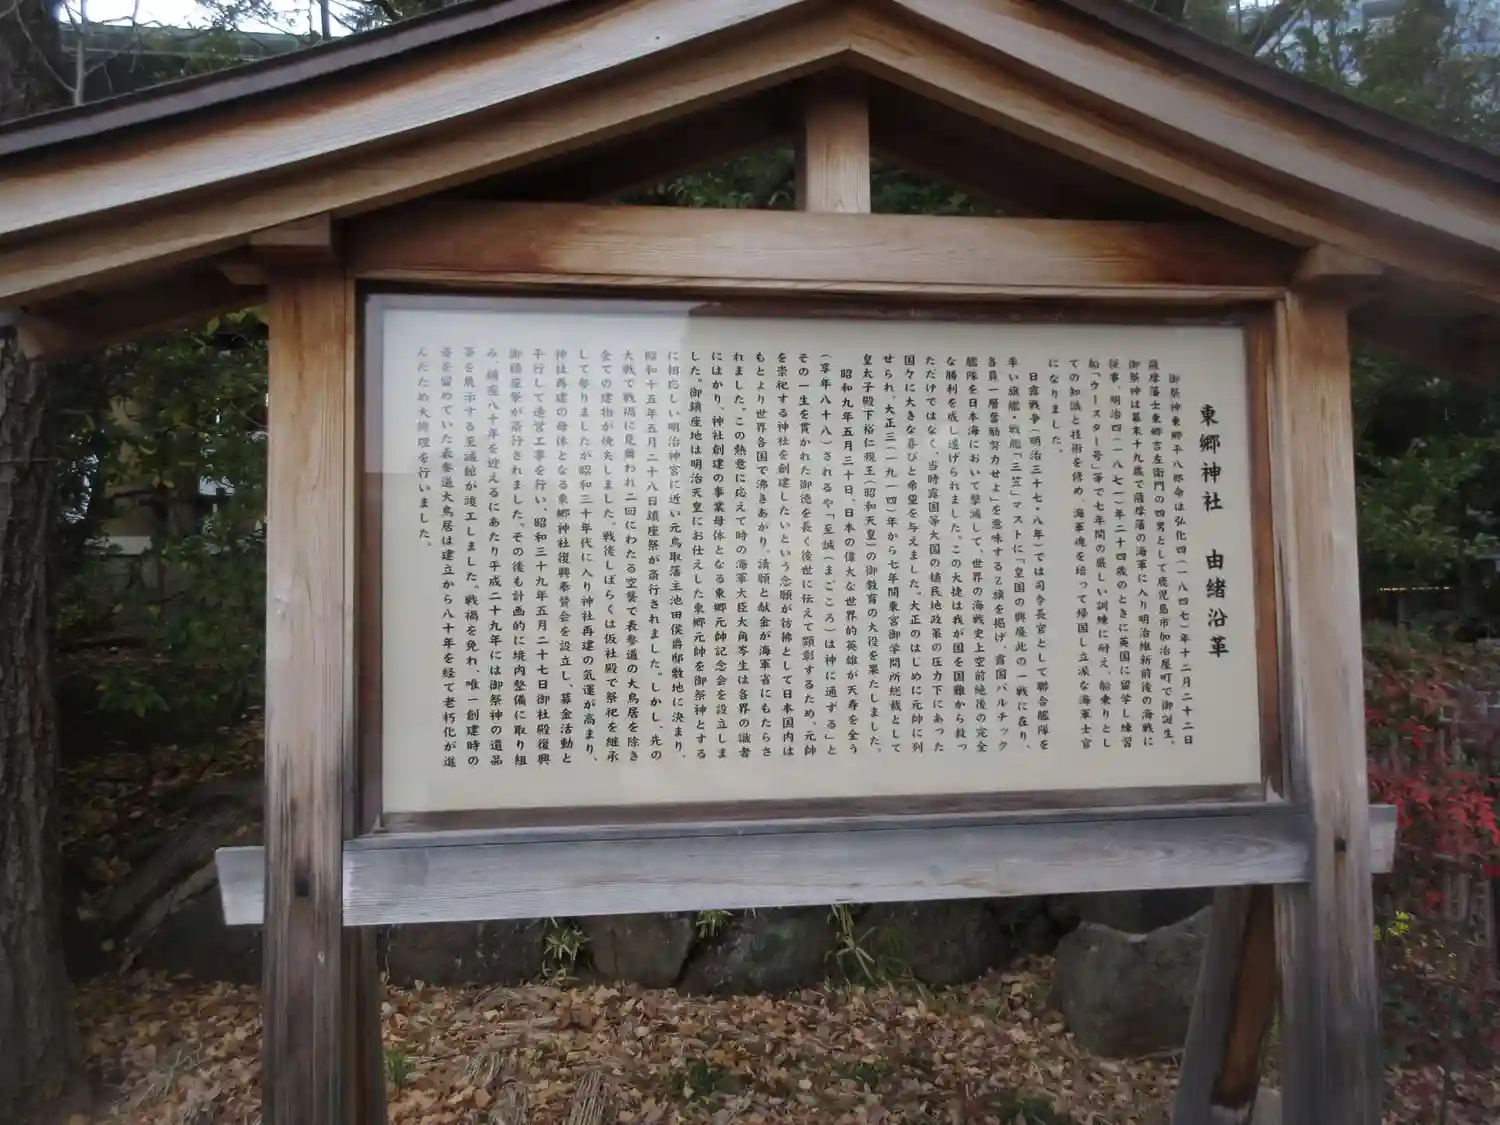 東郷神社　由緒沿革
御祭神東郷平八郎命は弘化四(一八四七)年十二月二十二日
薩摩藩士東郷吉左衛門の四男として鹿児島市加治屋町で御誕生。
御祭神は幕末十九歳で薩摩藩の海軍に入り明治維新前後の海戦に
従事、明治四(一八七一)年二十四歳のときに英国に留学し練習
船「ウースター号」等で七年間の厳しい訓練に耐え、船乗りとし
ての知識と技術を修め、海軍魂を培って帰国し立派な海軍士官
になりました。
日露戦争(明治三十七・八年)では司令長官として聯合艦隊を
率い旗艦・戦艦「三笠」マストに「皇国の興廃此の一戦に在り、
各員一層奮励努力せよ」を意味するＺ旗を掲げ、露国バルチック
艦隊を日本海において撃滅して、世界の海戦史上空前絶後の完全
な勝利を成し遂げられました。この大捷は我が国を国難から救っ
ただけではなく、当時露国等大国の植民地政策の圧力下にあった
国々に大きな喜びと希望を与えました。大正のはじめに元帥に列
せられ、大正三(一九一四)年から七年間東宮御学問所総裁として
皇太子殿下裕仁親王(昭和天皇)の御教育の大役を果たしました。
昭和九年五月三十日、日本の偉大な世界的英雄が天寿を全う
(享年八十八)されるや「至誠(まごころ)は神に通ずる」と
その一生を貫かれた御徳を長く後世に伝えて顕彰するため、元帥
を崇祀する神社を創建したいという念願が彷彿として日本国内は
もとより世界各国で沸きあがり、請願と献金が海軍省にもたらさ
れました。この熱意に応えて時の海軍大臣大角岑生は各界の識者
にはかり、神社創建の事業母体となる東郷元帥記念会を設立しま
した。御鎮座地は明治天皇にお仕えした東郷元帥を御祭神とする
に相応しい明治神宮に近い元鳥取藩主池田侯爵邸敷地に決まり、
昭和十五年五月二十八日鎮座祭が斎行されました。しかし、先の
大戦で戦禍に見舞われ二回にわたる空襲で表参道の大鳥居を除き
全ての建物が焼失しました。戦後しばらくは仮社殿で祭祀を継承
して参りましたが昭和三十年代に入り神社再建の気運が高まり、
神社再建の母体となる東郷神社復興奉賛会を設立し、募金活動と
平行して造営工事を行い、昭和三十九年五月二十七日御社殿復興
御鎮座祭が斎行されました。その後も計画的に境内整備に取り組
み、鎮座八十年を迎えるにあたり平成二十九年には御祭神の遺品
等を展示する至誠館が竣工しました。戦禍を免れ、唯一創建時の
姿を留めていた表参道大鳥居は建立から八十年を経て老朽化が進
んだため大修理を行いました。